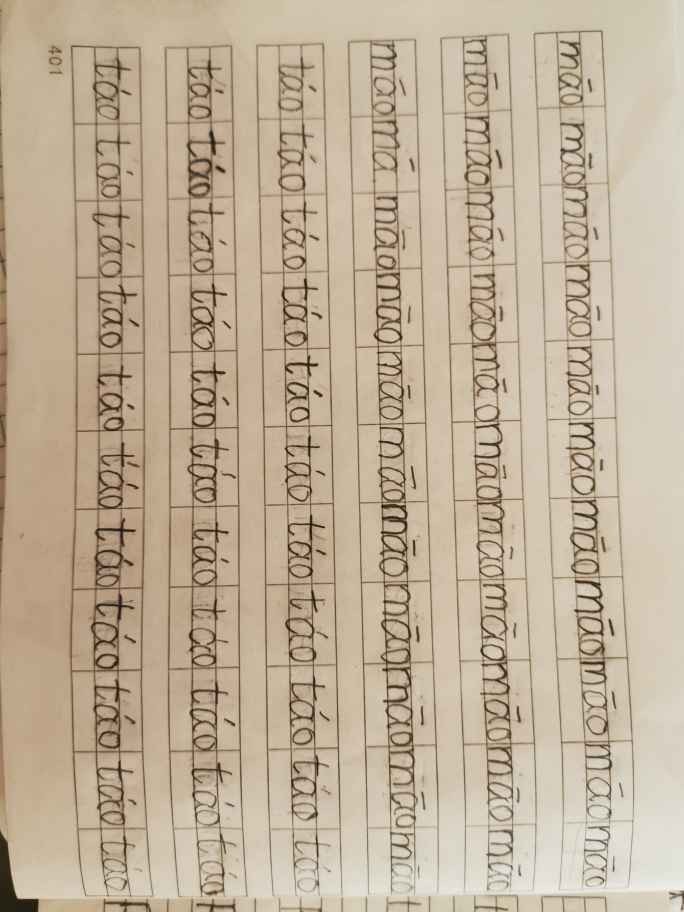 māo māo māo māo māo māo māo māo māo māo māo
māo māo māo māo māo māo māo māo māo māo māo
māo mā māo māo māo māo māo māo māo māo māo
táo táo táo táo táo táo táo táo táo táo táo
táo táo táo táo táo táo táo táo táo táo táo
táo táo táo táo táo táo táo táo táo táo táo
401